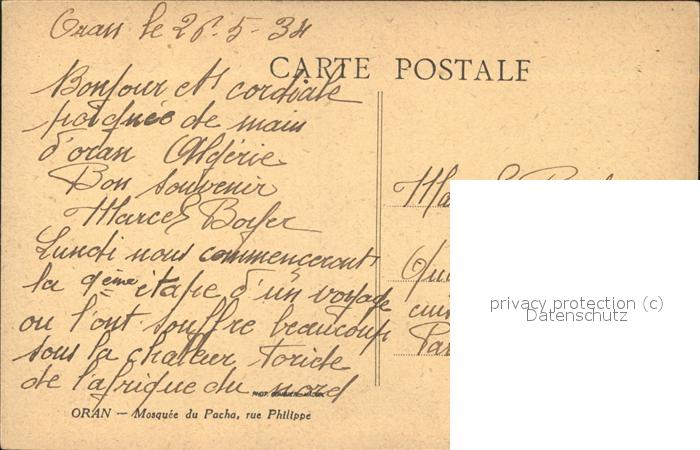 Oran le 26-5-34
CARTE POSTALE
Bonjour et cordiale
poignée de main
d'oran Algérie
Bon souvenir
Marcel Boyer
Lundi nous commencerons
la 9ème étape d'un voyage
ou l'ont souffre beaucoup
sous la chaleur toride
de l'afrique du nord
ORAN — Mosquée du Pacha, rue Philippe
privacy protection (c)
Datenschutz